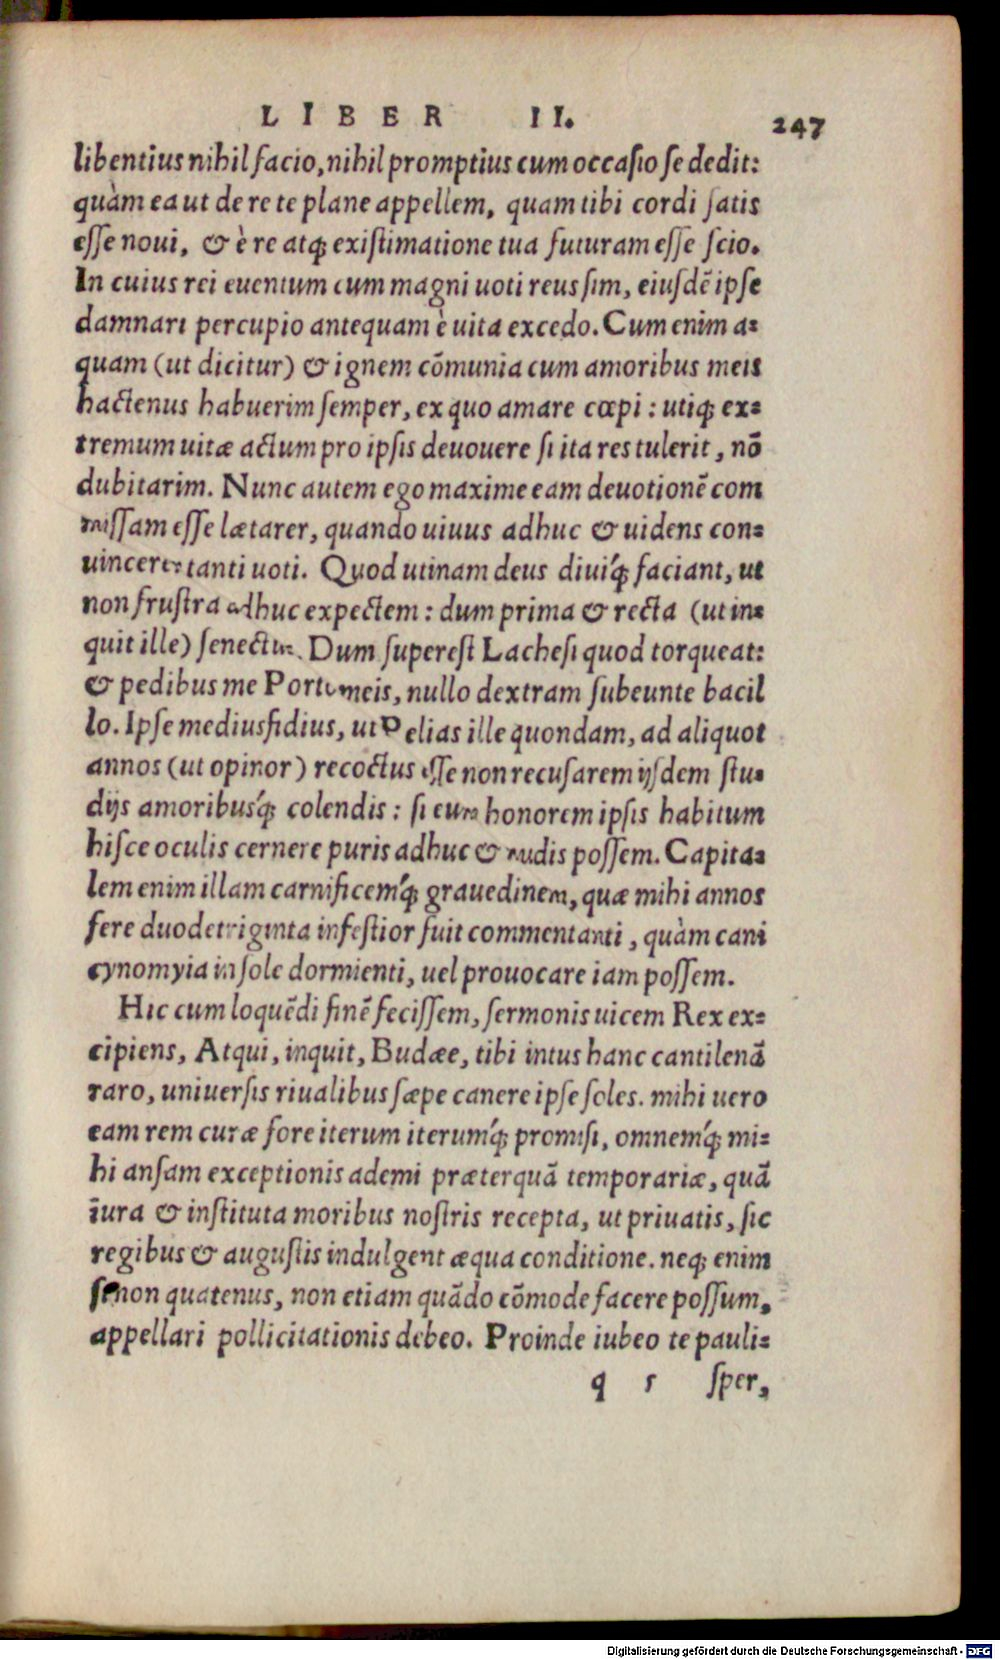 LIBER II. 247
libentius nihil facio, nihil promptius cum occasio se dedit:
quàm ea ut de re te plane appellem, quam tibi cordi satis
esse noui, & è re atq; existimatione tua futuram esse scio.
In cuius rei euentum cum magni uoti reus sim, eiusdē ipse
damnari percupio antequam è uita excedo. Cum enim a-
quam (ut dicitur) & ignem cōmunia cum amoribus meis
hactenus habuerim semper, ex quo amare cœpi: utiq; ex-
tremum uitæ actum pro ipsis deuouere si ita res tulerit, nō
dubitarim. Nunc autem ego maxime eam deuotionē com
missam esse lætarer, quando uiuus adhuc & uidens con-
uincerer tanti uoti. Quod utinam deus diuiq́; faciant, ut
non frustra adhuc expectem: dum prima & recta (ut in-
quit ille) senectus. Dum superest Lachesi quod torqueat:
& pedibus me Porto meis, nullo dextram subeunte bacil
lo. Ipse mediusfidius, ut Pelias ille quondam, ad aliquot
annos (ut opinor) recoctus esse non recusarem ijsdem stu-
dijs amoribusq́; colendis: si eum honorem ipsis habitum
hisce oculis cernere puris adhuc & nudis possem. Capita-
lem enim illam carnificemq́; grauedinem, quæ mihi annos
fere duodetriginta infestior fuit commentanti, quàm cani
cynomyia in sole dormienti, uel prouocare iam possem.
Hic cum loquēdi finē fecissem, sermonis uicem Rex ex-
cipiens, Atqui, inquit, Budæe, tibi intus hanc cantilenā
raro, uniuersis riualibus sæpe canere ipse soles. mihi uero
eam rem curæ fore iterum iterumq́; promisi, omnemq́; mi-
hi ansam exceptionis ademi præterquā temporariæ, quā
iura & instituta moribus nostris recepta, ut priuatis, sic
regibus & augustis indulgent æqua conditione. neq; enim
si non quatenus, non etiam quādo cōmode facere possum,
appellari pollicitationis debeo. Proinde iubeo te pauli-
q 5 sper,
Digitalisierung gefördert durch die Deutsche Forschungsgemeinschaft - DFG